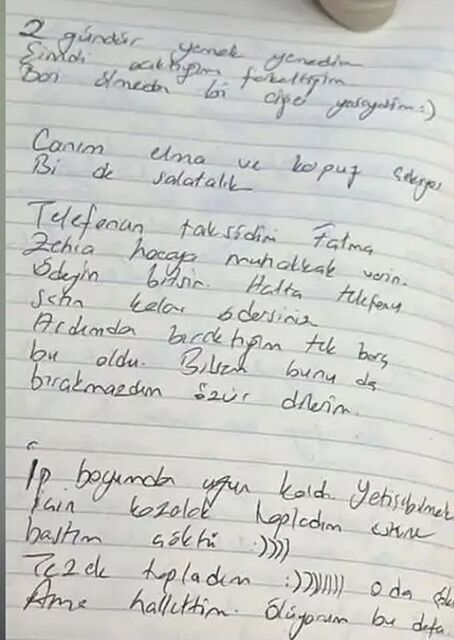 2 gündür yemek yemedim
Şimdi acıktığım farkettiğim
Ben ölmeden bi çiçei yaşıyalım :)
Canım elma ve kapuz çekiyor
Bi de salatalık
Telefonun taksidini Fatma
Zehra hocaya muhakkak verin.
Ödeyin bitsin. Hatta telefonu
satın kolay edersiniz
Ardımda bıraktığım tek borç
bu oldu. Bilsem bunu da
bırakmazdım özür dilerim.
İp boyumdan uzun kaldı. Yetişebilmek
İçin kozalak topladım üstüne
bastım çöktü :))))
Tezek topladım :)))))))) o da
Ama hallettim. Ölüyorum bu defa